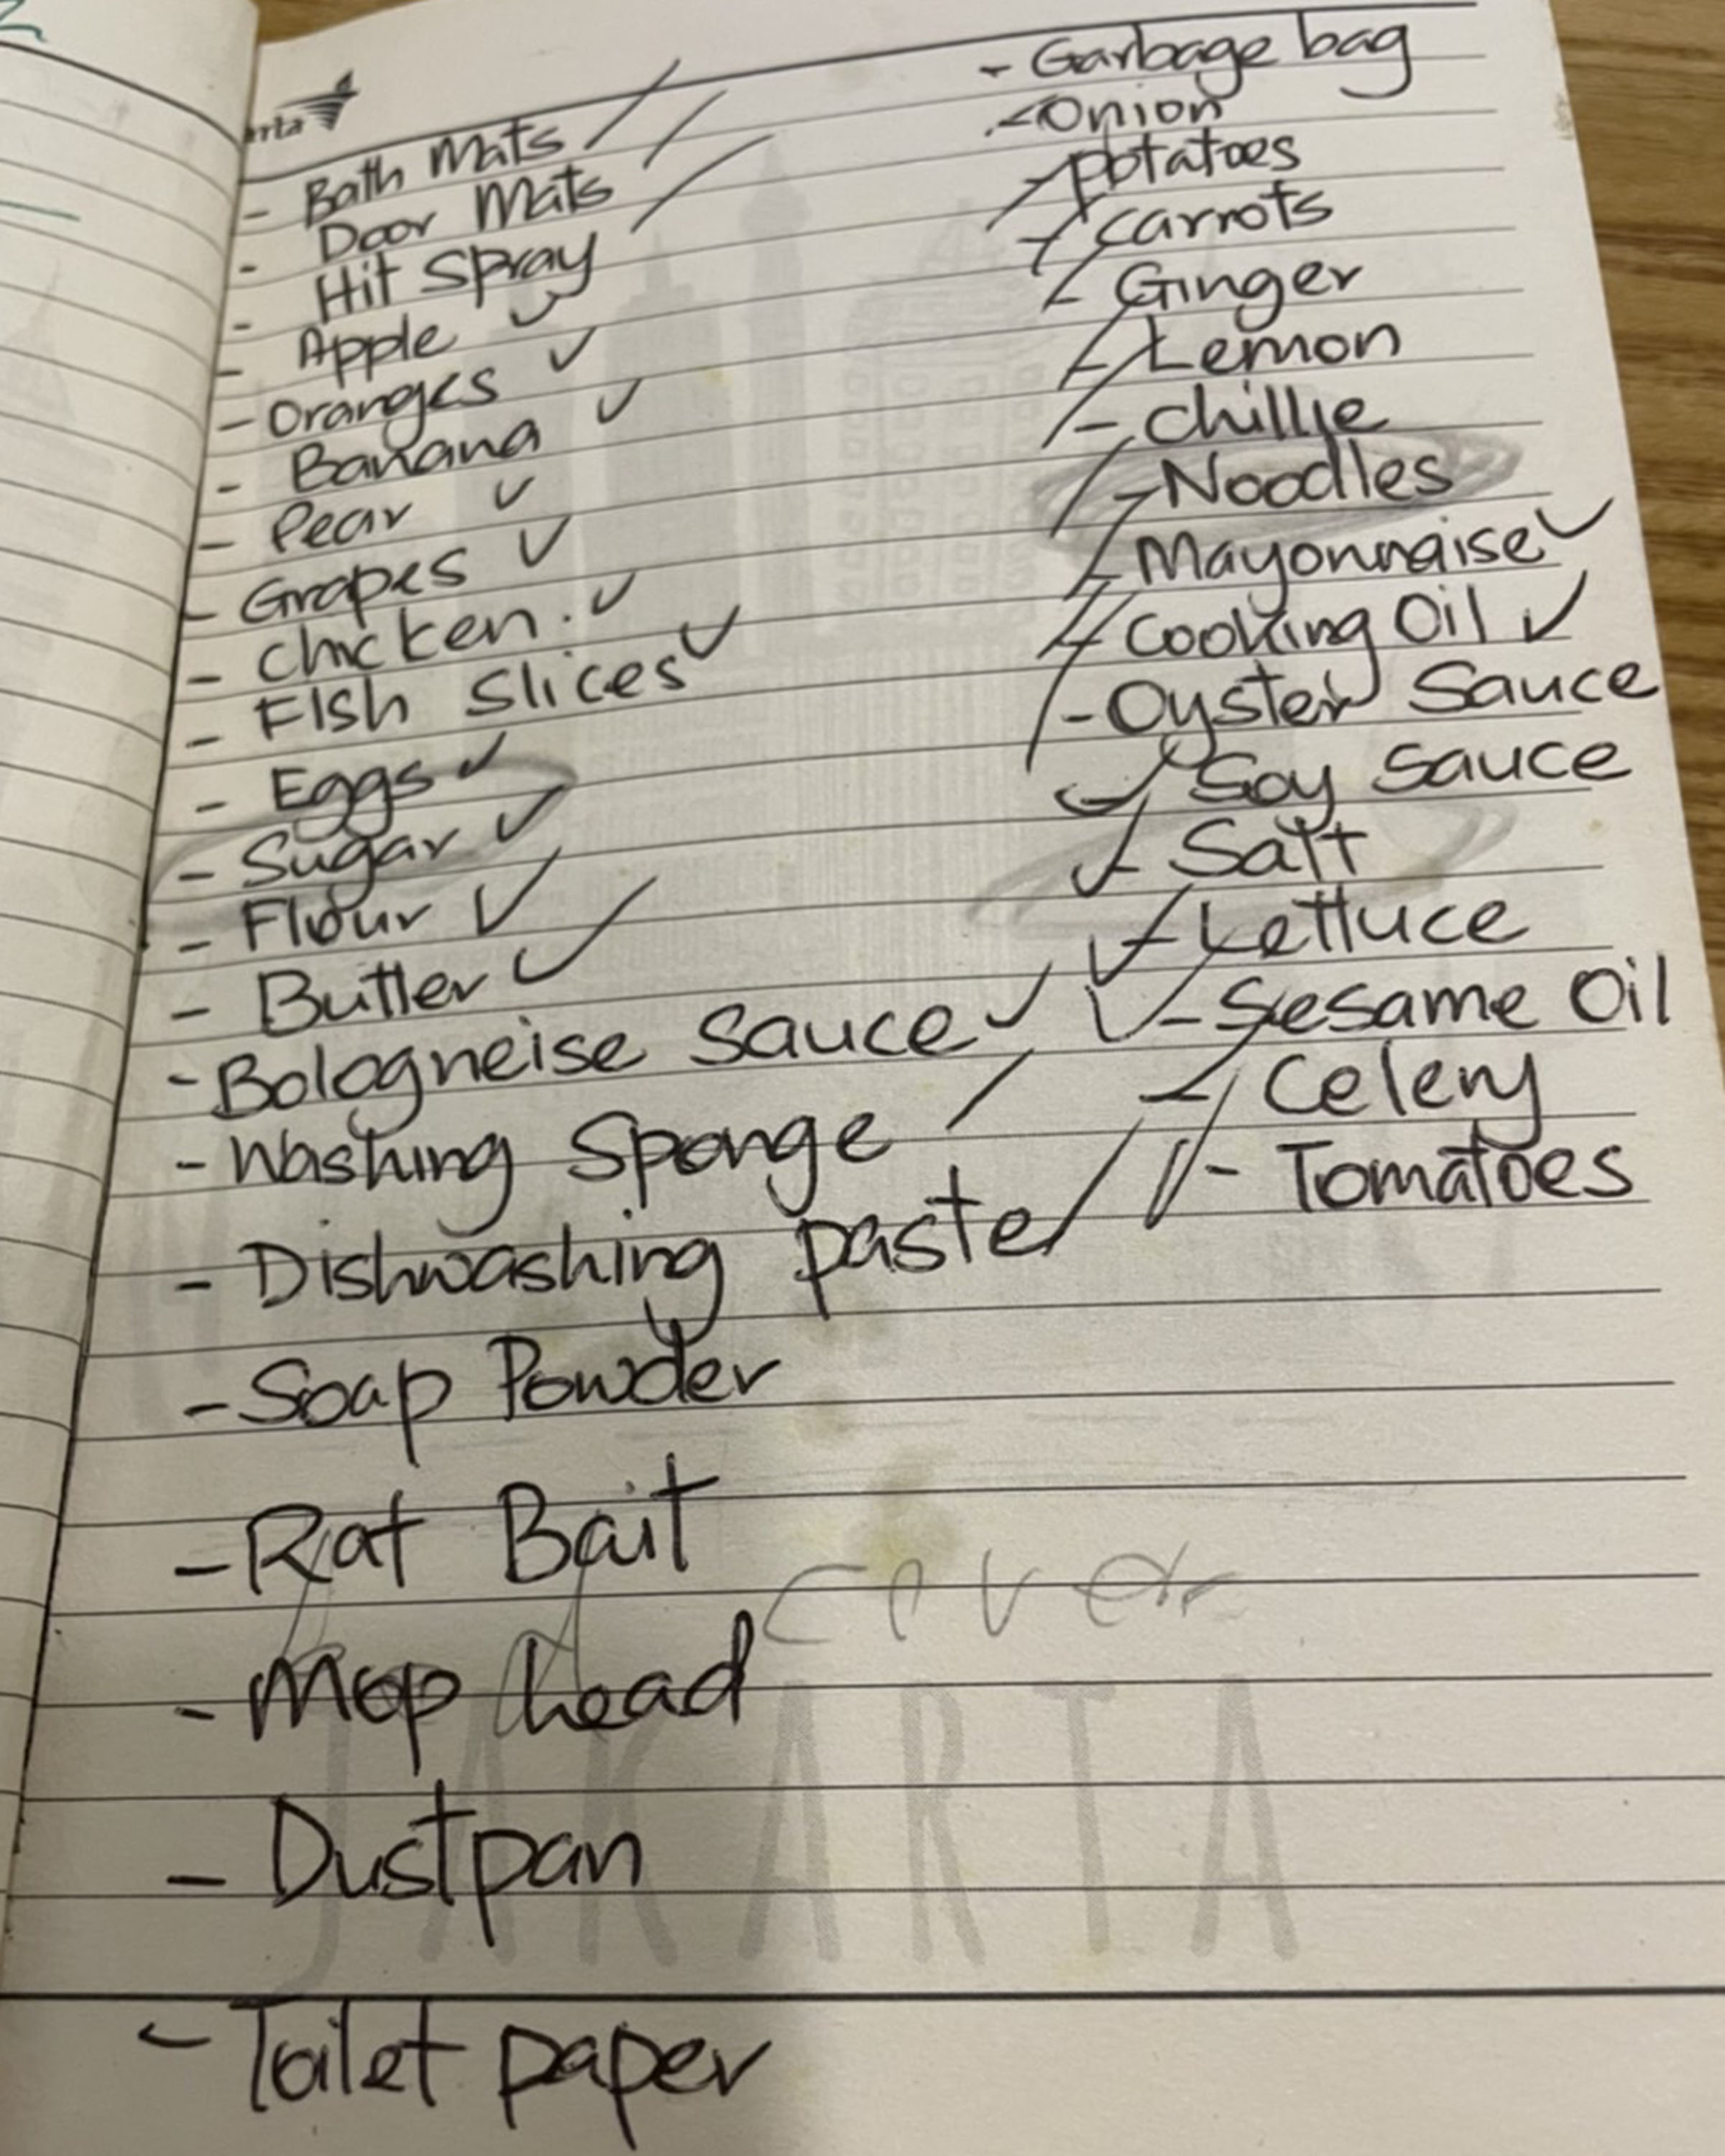 - Bath Mats
- Door Mats
- Hit Spray
- Apple
- Oranges
- Banana
- Pear
- Grapes
- Chicken.
- Fish Slices
- Eggs
- Sugar
- Flour
- Butter
- Bologneise Sauce
- Washing Sponge
- Dishwashing paste
- Soap Powder
- Rat Bait
- Mop head
- Dustpan
- Toilet paper
- Garbage bag
- Onion
- potatoes
- carrots
- Ginger
- Lemon
- chillie
- Noodles
- Mayonnaise
- Cooking Oil
- Oyster Sauce
- Soy Sauce
- Salt
- Lettuce
- Sesame Oil
- Celery
- Tomatoes
cover
JAKARTA